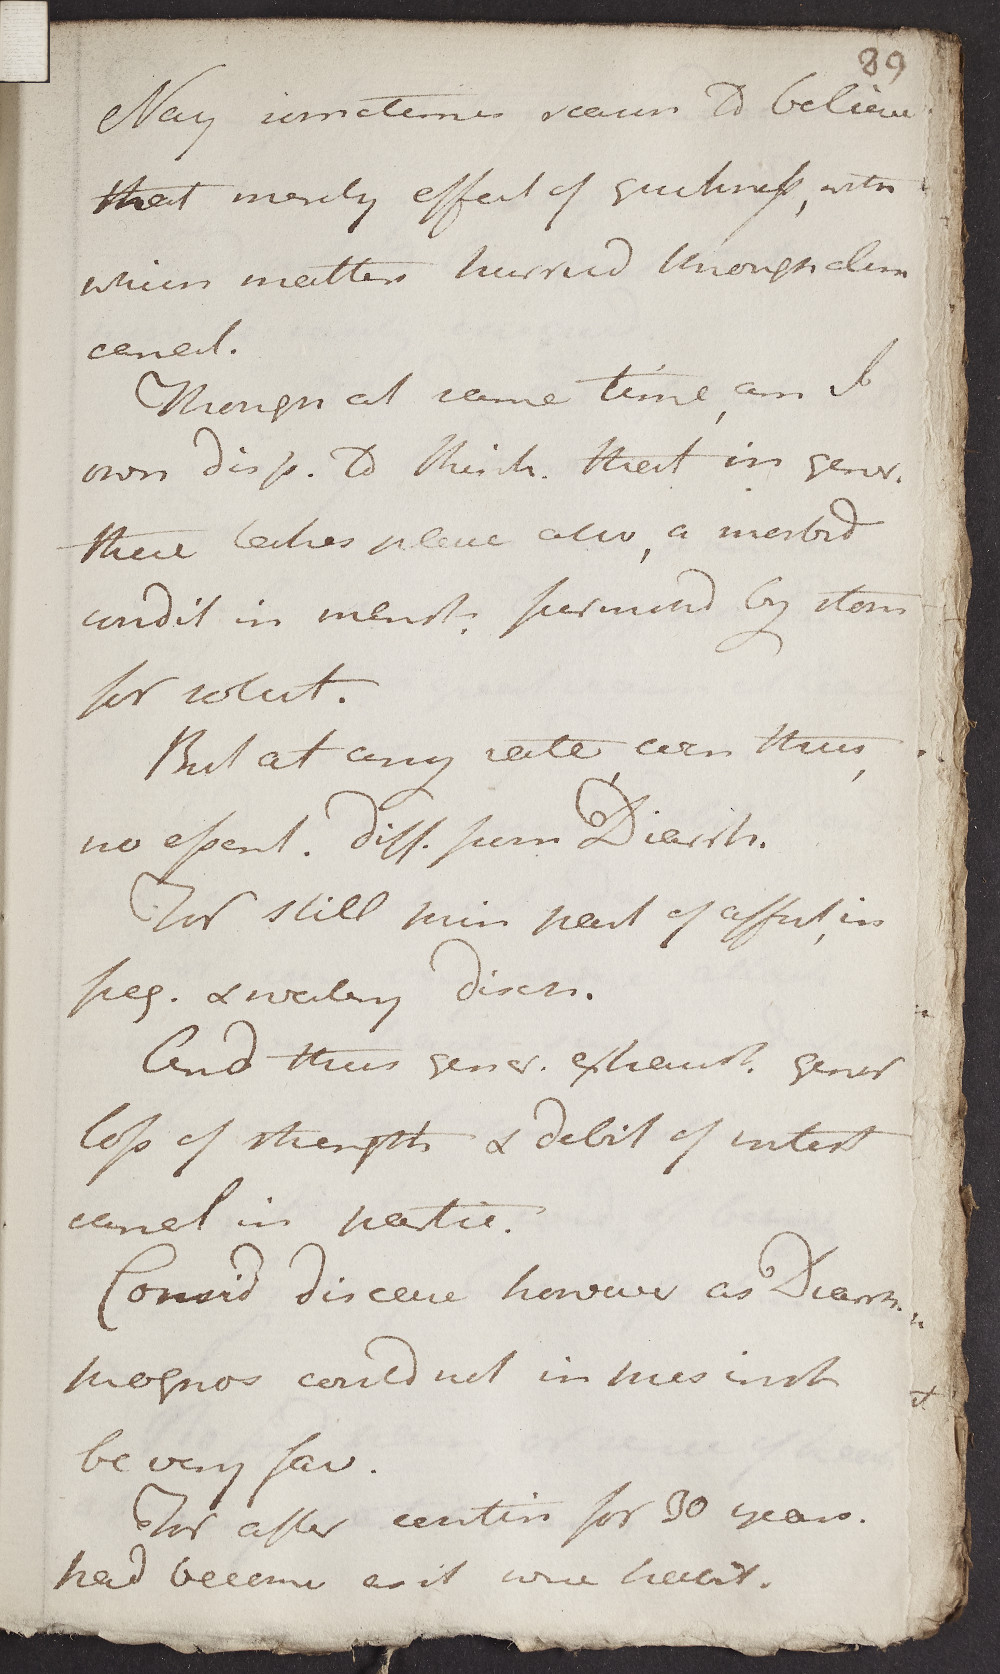 89
Nay sometimes reason to believe
that merely effect of quickness, with
which matters hurried through alim
canal.
Though at same time, am I
own disp. to think. that in gener.
there takes place also, a morbid
condit in menst. furnished by stom
for solut.
But at any rate, even thus,
no essent. diff. from Diarrh.
For still princ part of affect, in
freq. & watery disch.
And thus gener. exhaust. gener
loss of strength & debil of intest
canal in partic.
Consid disease however as Diarrh.
prognos could not in pres inst
be very fav.
For after contin for 30 years.
had become as it were habit.